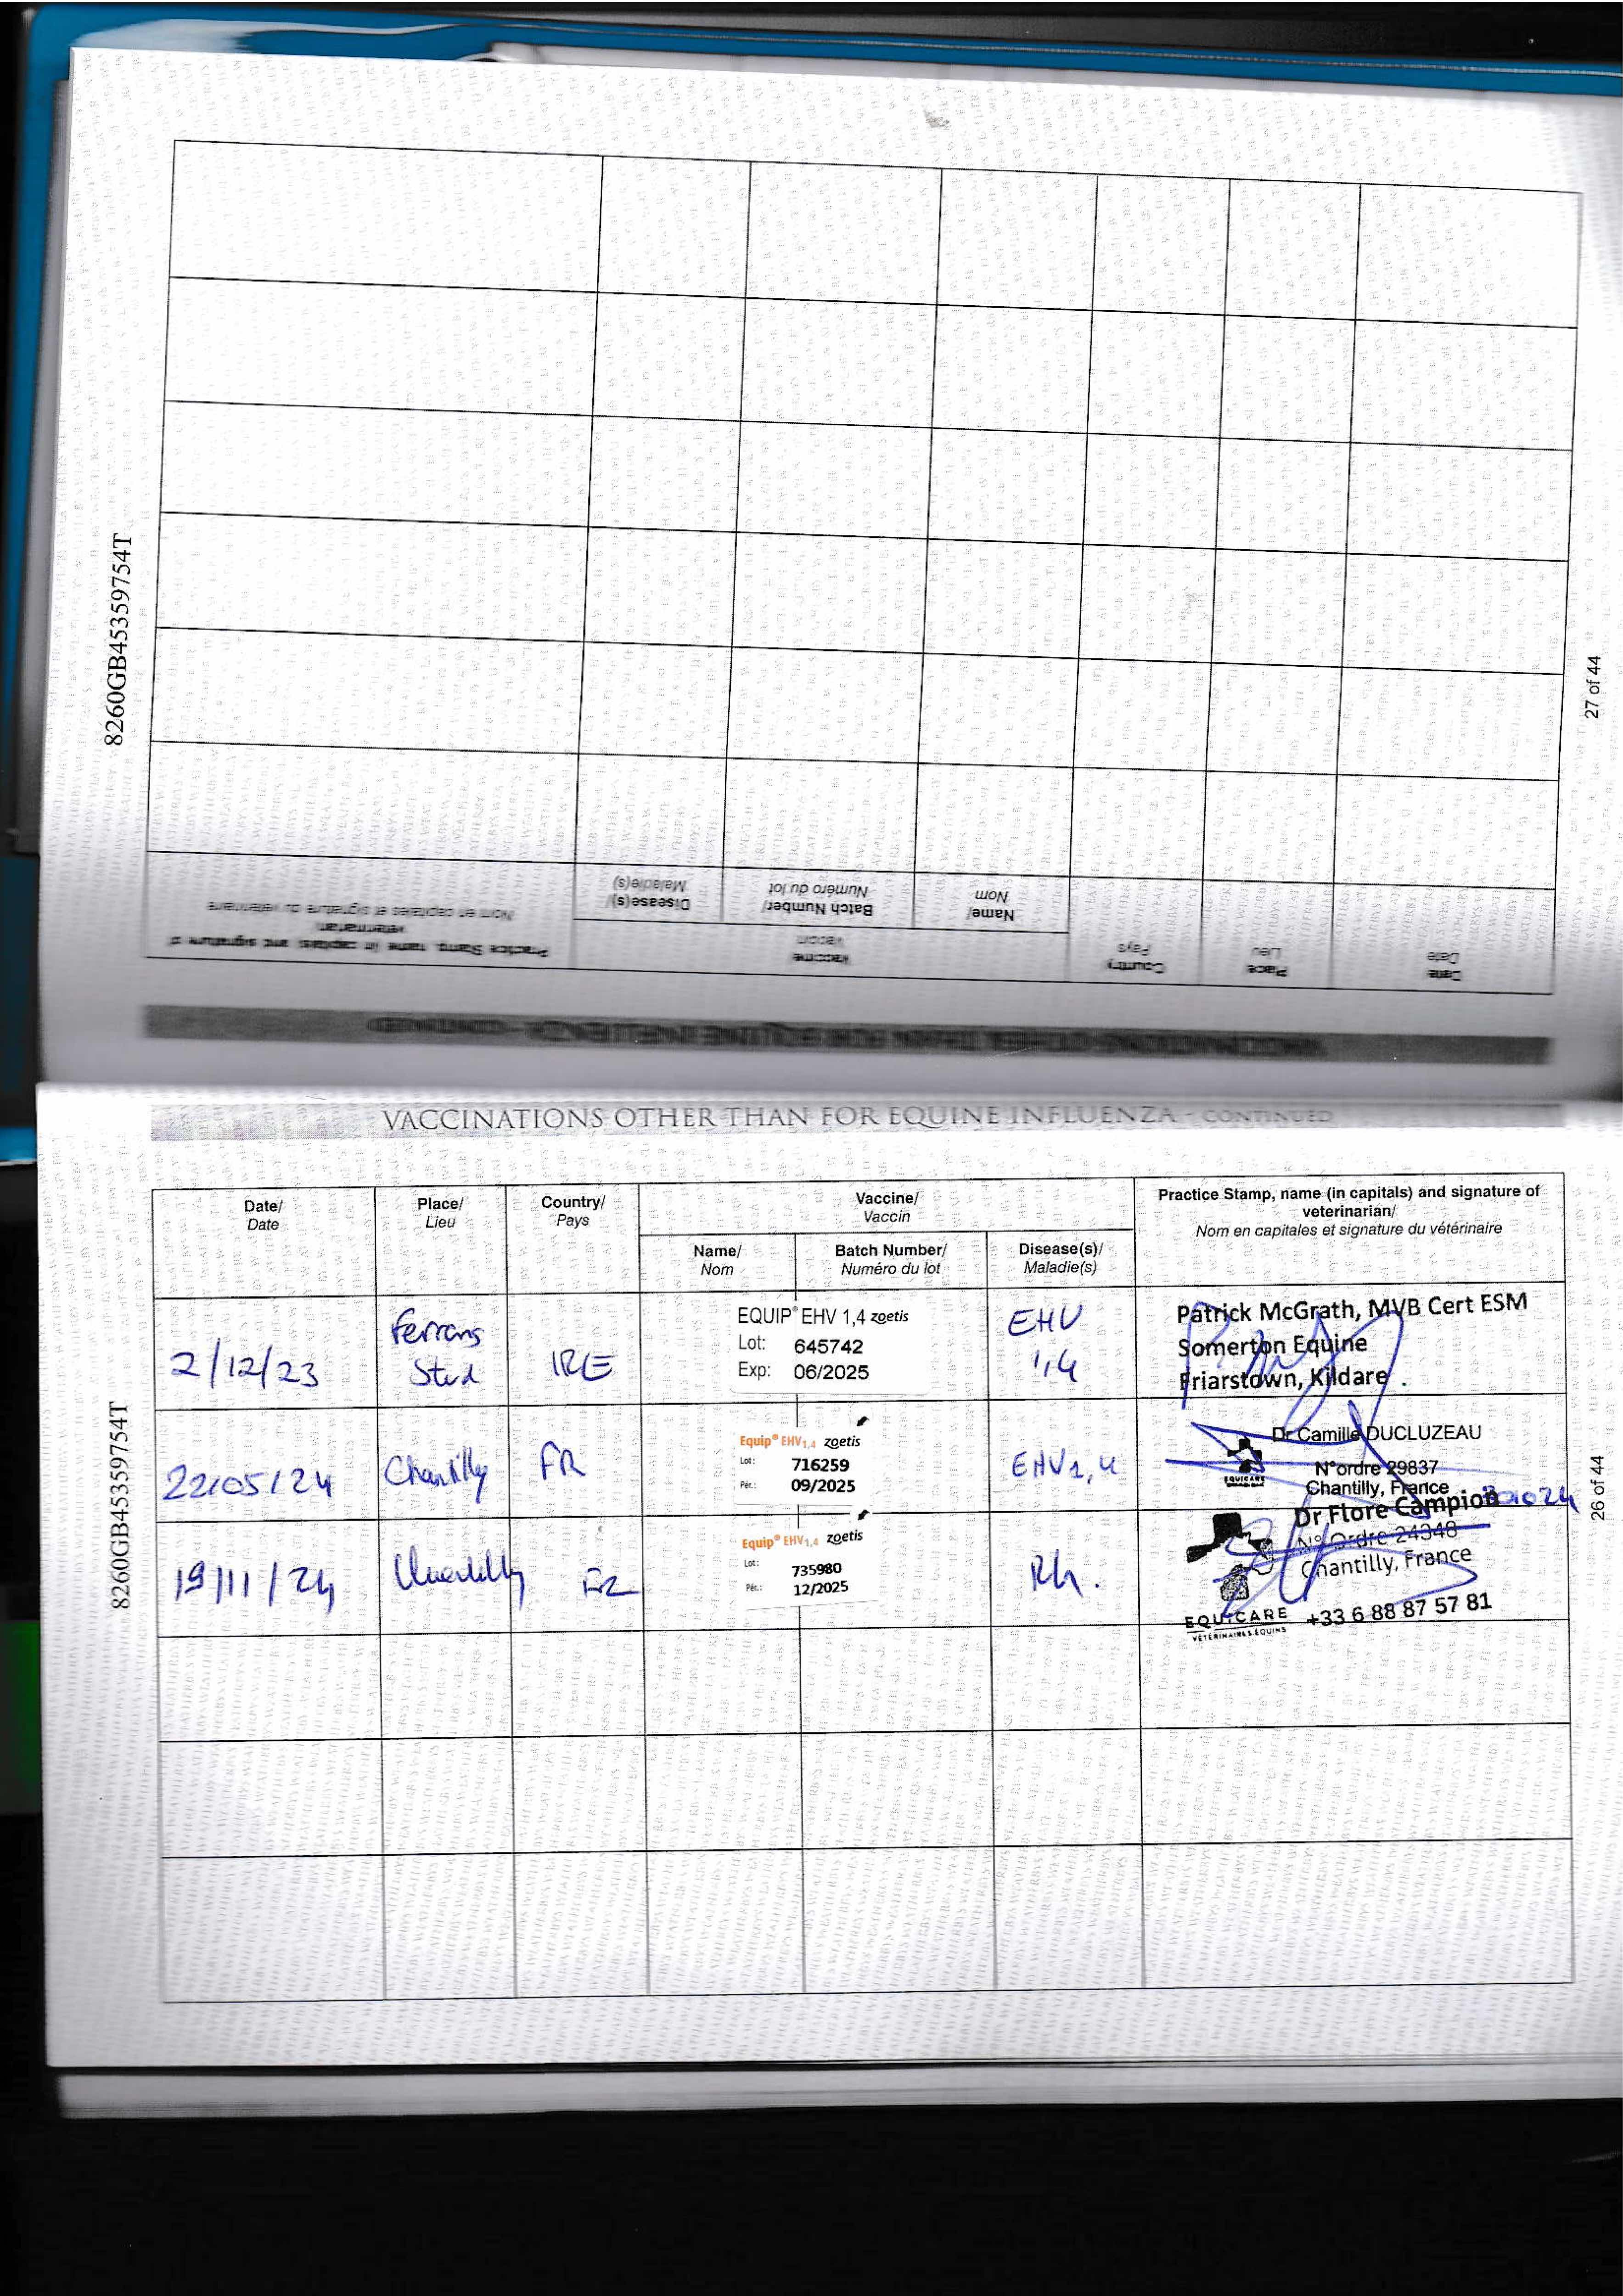 8260GB45359754T
27 of 44
VACCINATIONS OTHER THAN FOR EQUINE INFLUENZA - CONTINUED
Date/
Date
Place/
Lieu
Country/
Pays
Vaccine/
Vaccin
Name/
Nom
Batch Number/
Numéro du lot
Disease(s)/
Maladie(s)
Practice Stamp, name (in capitals) and signature of
veterinarian/
Nom en capitales et signature du vétérinaire
VACCINATIONS OTHER THAN FOR EQUINE INFLUENZA - CONTINUED
Date/
Date
Place/
Lieu
Country/
Pays
Vaccine/
Vaccin
Name/
Nom
Batch Number/
Numéro du lot
Disease(s)/
Maladie(s)
Practice Stamp, name (in capitals) and signature of
veterinarian/
Nom en capitales et signature du vétérinaire
2/12/23
Ferrans
Stud
IRE
EQUIP® EHV 1,4 zoetis
Lot: 645742
Exp: 06/2025
EHV
1,4
Patrick McGrath, MVB Cert ESM
Somerton Equine
Friarstown, Kildare.
22/05/24
Chantilly
FR
Equip® EHV1,4 zoetis
Lot: 716259
Pér.: 09/2025
EHV1,4
Dr Camille DUCLUZEAU
N°ordre 29837
Chantilly, France
EQUICARE
19/11/24
Chantilly
FR
Equip® EHV1,4 zoetis
Lot: 735980
Pér.: 12/2025
Rh.
Dr Flore Campion
N° Ordre 24348
Chantilly, France
EQUICARE +33 6 88 87 57 81
VÉTÉRINAIRES ÉQUINS
8260GB45359754T
26 of 44